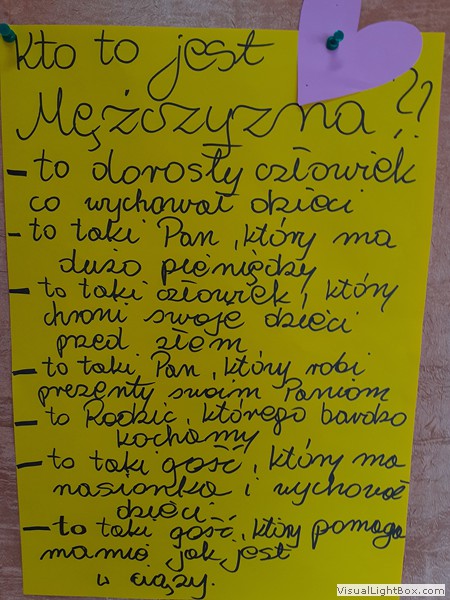 Kto to jest
Mężczyzna??
- to dorosły człowiek
co wychował dzieci
- to taki Pan, który ma
dużo pieniędzy
- to taki człowiek, który
chroni swoje dzieci
przed złem
- to taki Pan, który robi
prezenty swoim Paniom
- to Rodzic, którego bardzo
kochamy
- to taki gość, który ma
nasionka i wychował
dzieci
- to taki gość, który pomaga
mamie jak jest
w ciąży.
VisualLightBox.com